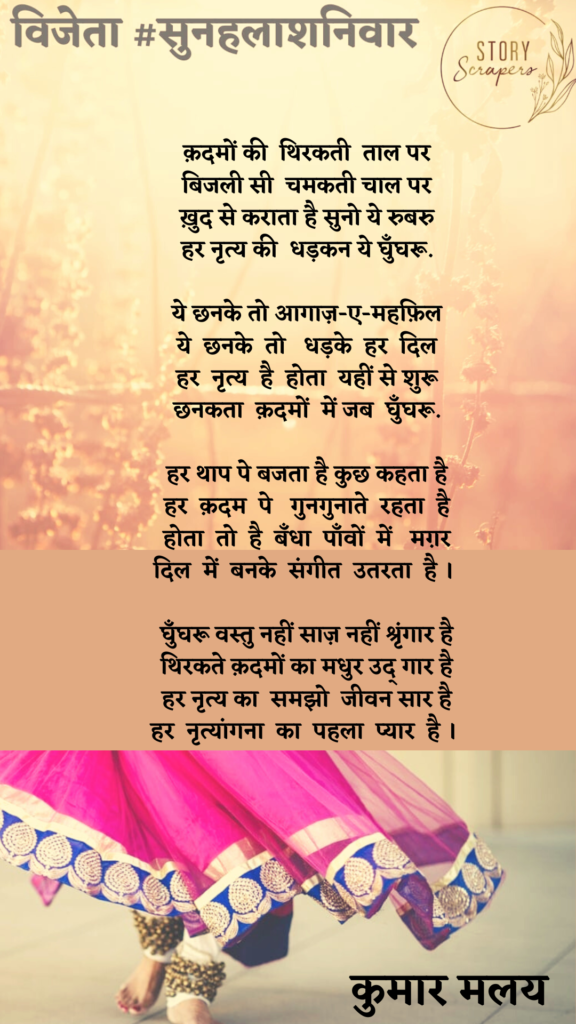 विजेता #सुनहलाशनिवार
STORY
Scrapers
क़दमों की थिरकती ताल पर
बिजली सी चमकती चाल पर
ख़ुद से कराता है सुनो ये रुबरु
हर नृत्य की धड़कन ये घुँघरू.
ये छनके तो आगाज़-ए-महफ़िल
ये छनके तो धड़के हर दिल
हर नृत्य है होता यहीं से शुरू
छनकता क़दमों में जब घुँघरू.
हर थाप पे बजता है कुछ कहता है
हर क़दम पे गुनगुनाते रहता है
होता तो है बँधा पाँवों में मग़र
दिल में बनके संगीत उतरता है ।
घुँघरू वस्तु नहीं साज़ नहीं श्रृंगार है
थिरकते क़दमों का मधुर उद् गार है
हर नृत्य का समझो जीवन सार है
हर नृत्यांगना का पहला प्यार है ।
कुमार मलय